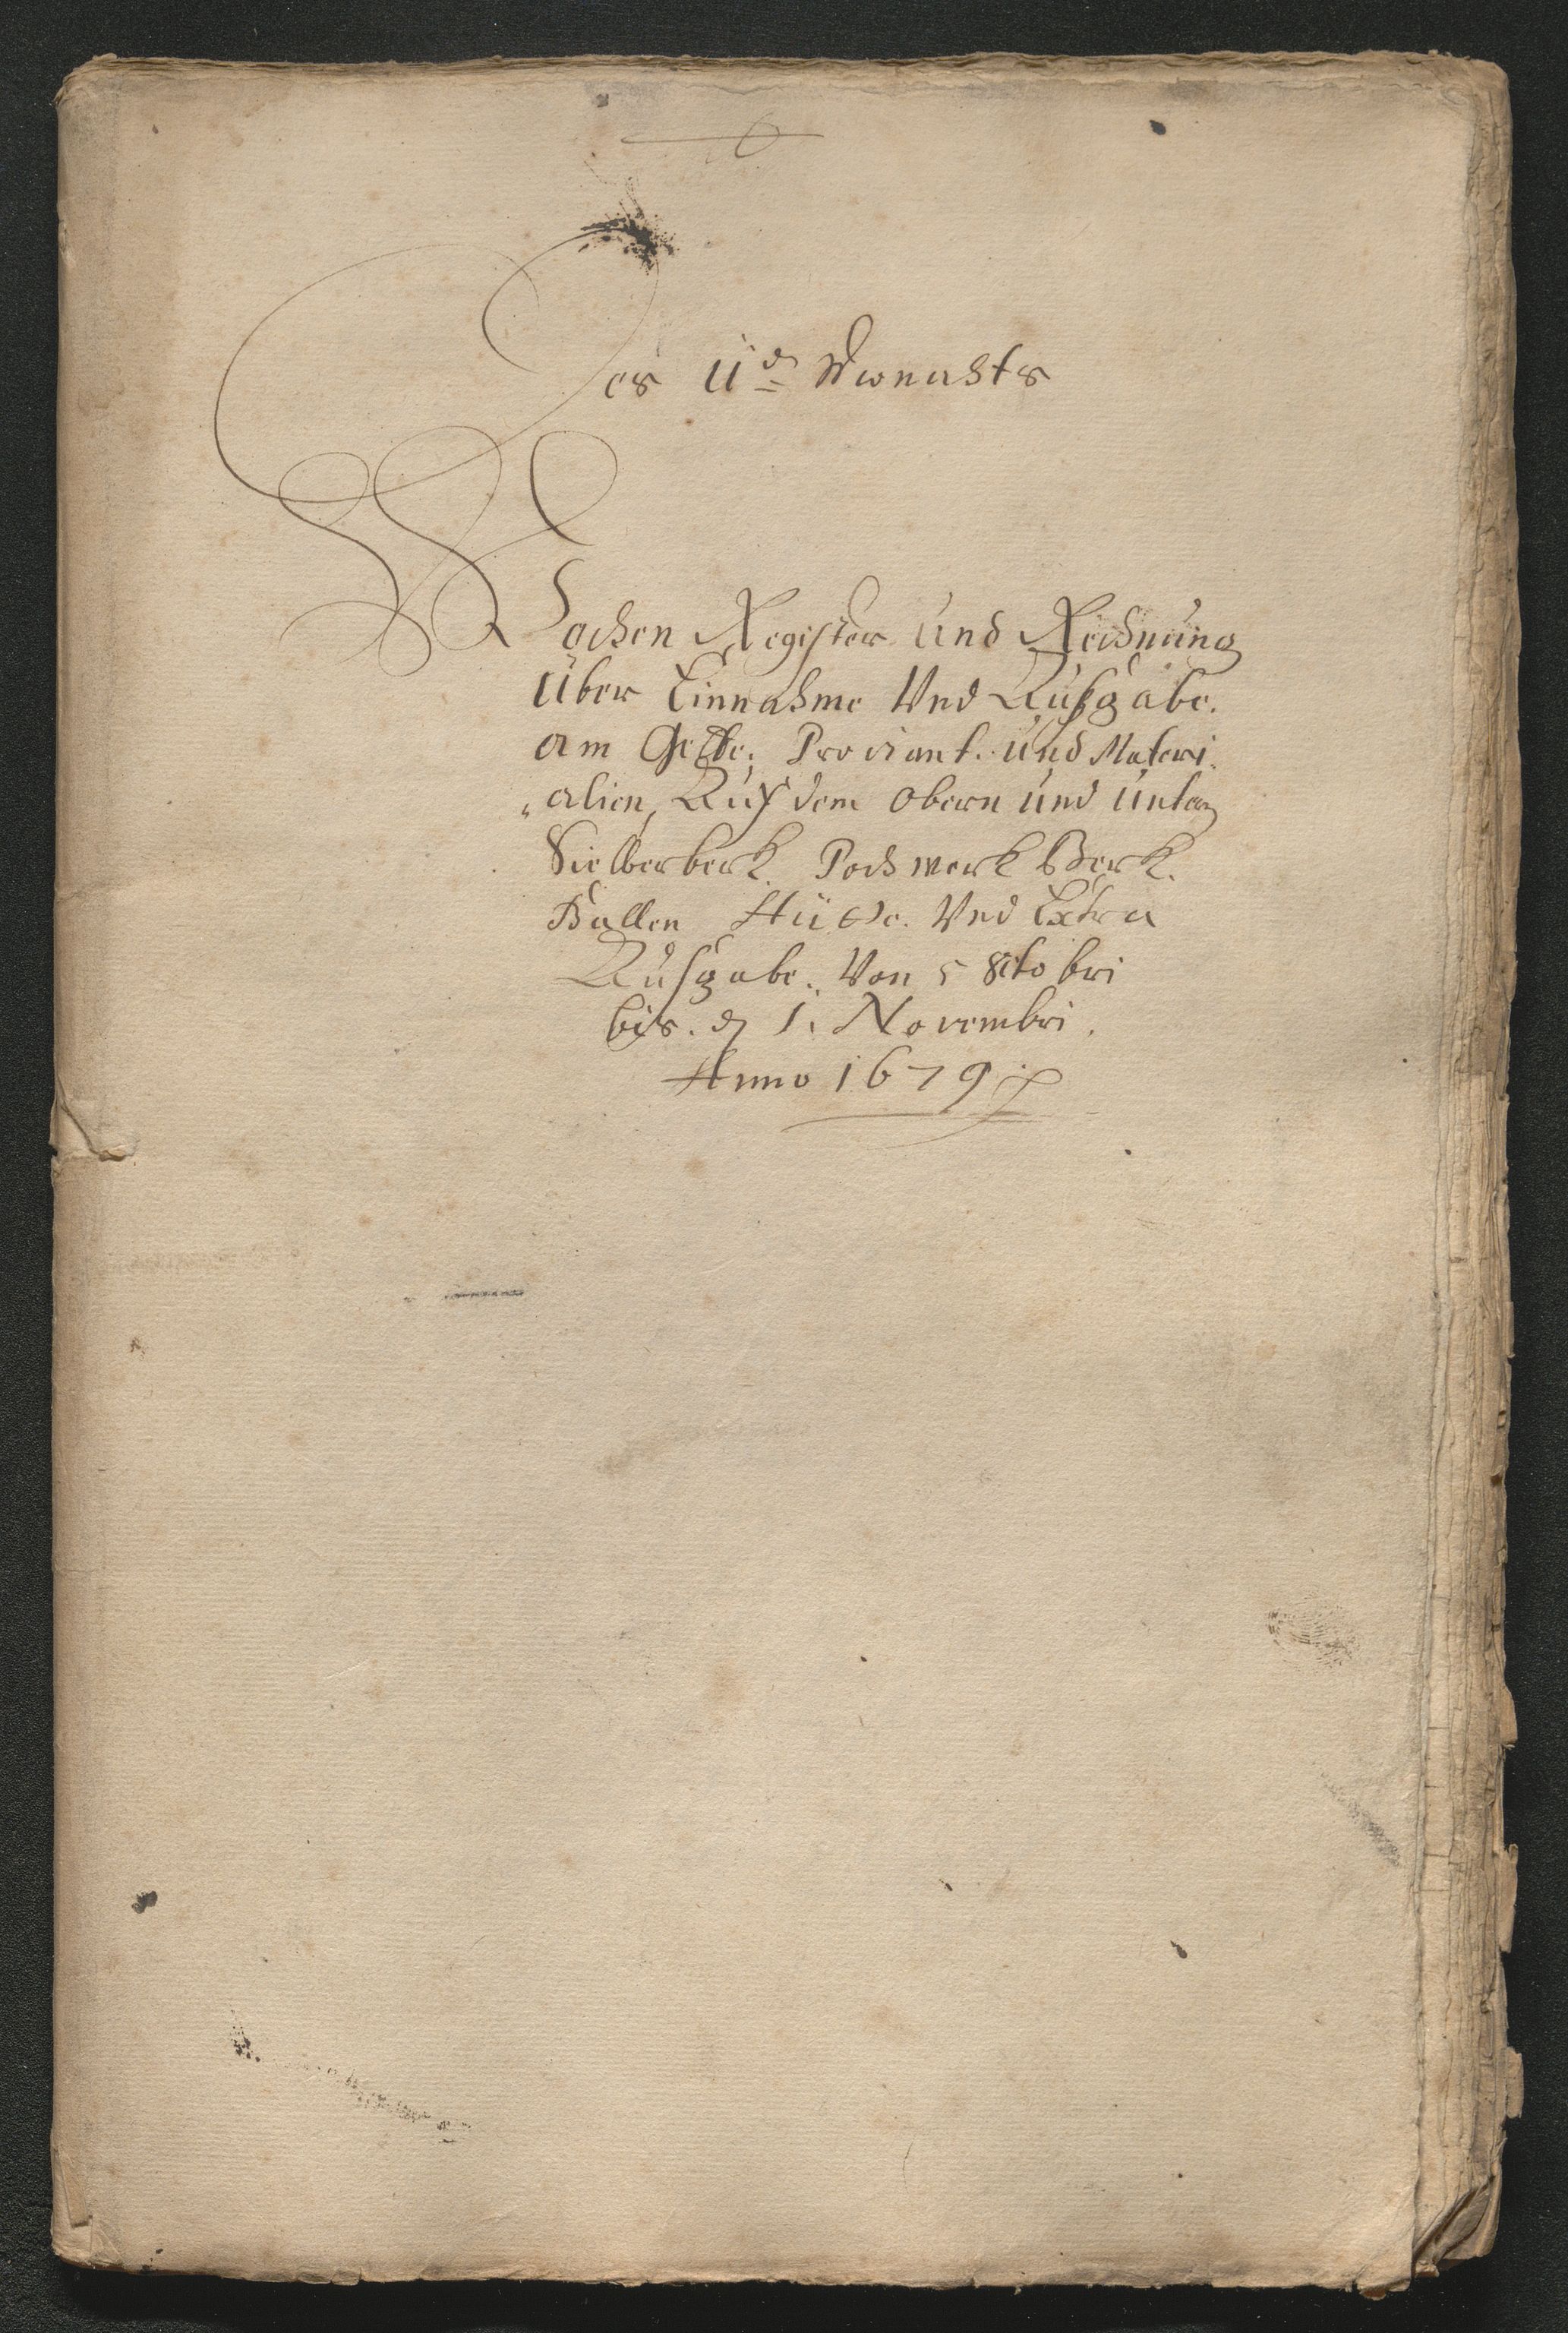 Des 11.d Monahts
Wochen Register und Rechnung
Uber Einnahme Und Außgabe.
am Gelde, Proviant. und Materi„
„alien, Auf dem Obern und Untern
Sielberberk. Pochwerk Berk.
Ballen Hütte. Und Extra
Ausgabe. Von 5 8cto bri
bis. d 1. Novembri.
Anno 1679